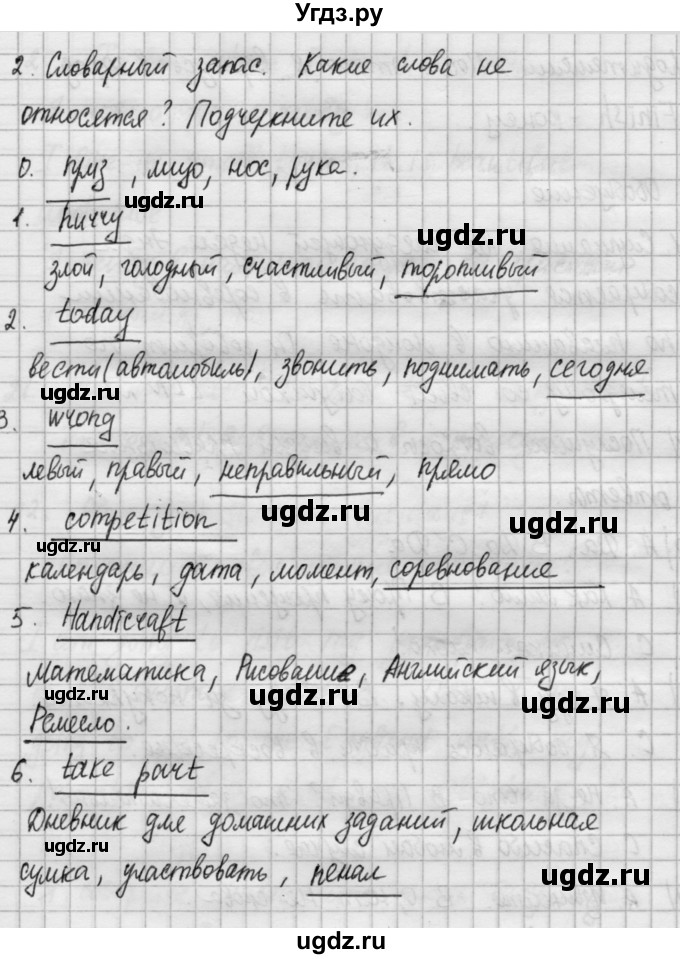 Угдз.ру
2. Словарный запас. Какие слова не
относятся? Подчеркните их.
0. приз, лицо, нос, рука.
ugdz.ru
1. hurry
ugdz.ru
злой, голодный, счастливый, торопливый
2. today
вести (автомобиль), звонить, поднимать, сегодня
ugdz.ru ugdz.ru
3. wrong
левый, правый, неправильный, прямо
4. competition ugdz.ru ugdz.ru
ugdz.ru
календарь, дата, момент, соревнование
5. Handicraft
Математика, Рисование, Английский язык,
ugdz.ru ugdz.ru ugdz.ru
Ремесло.
6. take part
Дневник для домашних заданий, школьная
ugdz.ru
сумка, участвовать, пенал ugdz.ru
ugdz.ru